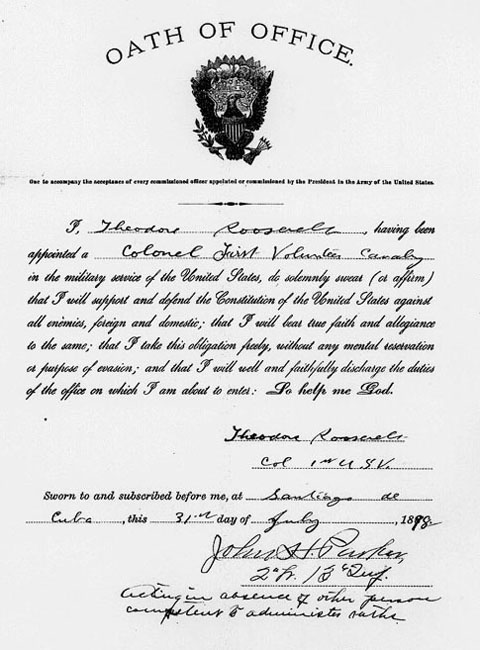 OATH OF OFFICE.
One to accompany the acceptance of every commissioned officer appointed or commissioned by the President in the Army of the United States.
I, Theodore Roosevelt, having been
appointed a Colonel First Volunteer Cavalry
in the military service of the United States, do solemnly swear (or affirm)
that I will support and defend the Constitution of the United States against
all enemies, foreign and domestic; that I will bear true faith and allegiance
to the same; that I take this obligation freely, without any mental reservation
or purpose of evasion; and that I will well and faithfully discharge the duties
of the office on which I am about to enter: So help me God.
Theodore Roosevelt
Col 1st U.S.V.
Sworn to and subscribed before me, at Santiago de
Cuba, this 31st day of July, 1898
John H Parker,
2d Lt. 13th Inf.
Acting in absence of other person
competent to administer oaths.